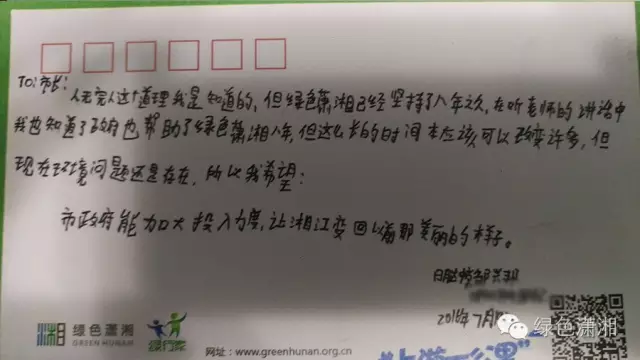 TO:市长:
人无完人这个道理我是知道的,但绿色潇湘已经坚持了八年之久,在听老师的讲话中
我也知道了政府也帮助了绿色潇湘八年,但这么长的时间本应该可以改变许多,但
现在环境问题还是存在,所以我希望:
市政府能加大投入力度,让湘江变回以前那美丽的样子。
2016年7月
绿色潇湘
GREEN HUNAN
网址:www.greenhunan.org.cn
绿色潇湘